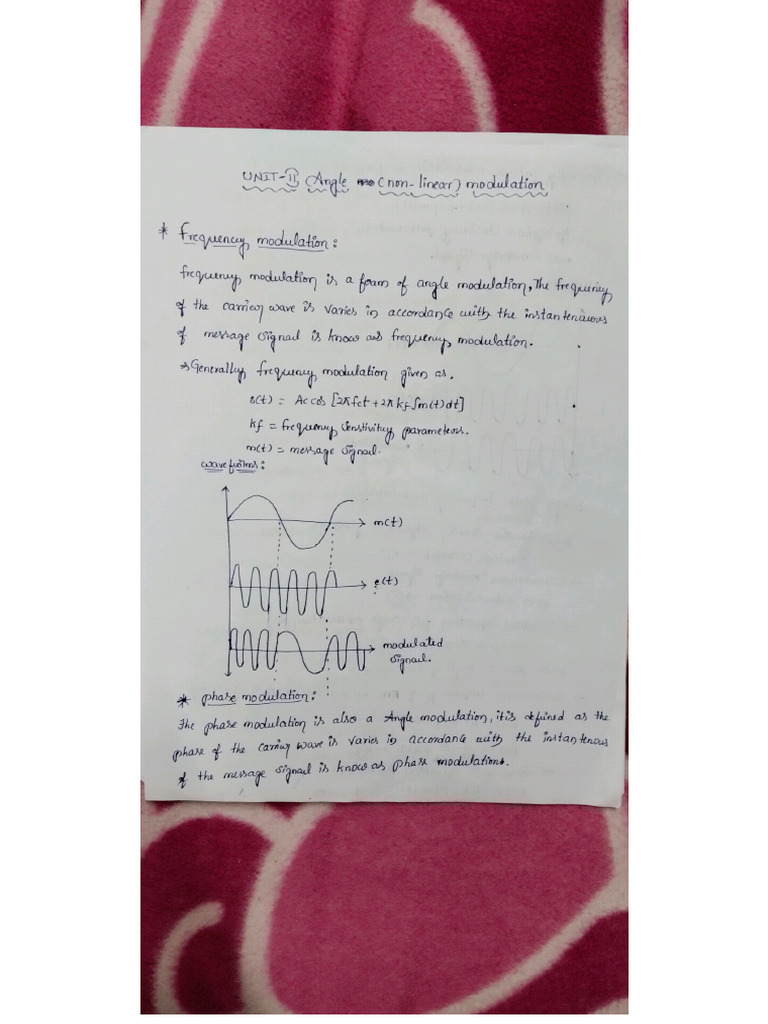 UNIT-II Angle (non-linear) modulation
* frequency modulation:
frequency modulation is a foam of angle modulation, The frequency
of the carrier wave is varies in accordance with the instantenuous
of message signal is know as frequency modulation.
⇒ Generally frequency modulation given as,
s(t) = Ac cos [2πfct + 2π kf ∫m(t) dt]
kf = frequency senstivity parameters.
m(t) = message signal.
wave forms:
m(t)
c(t)
modulated
signal.
* phase modulation:
The phase modulation is also a Angle modulation, it is defined as the
phase of the carrier wave is varies in accordance with the instantenous
of the message signal is know as phase modulations.